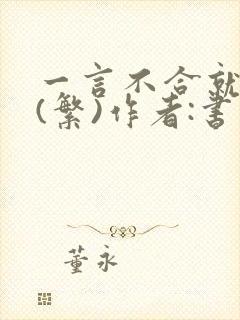 一言不合就
(繁)作者:書
董永